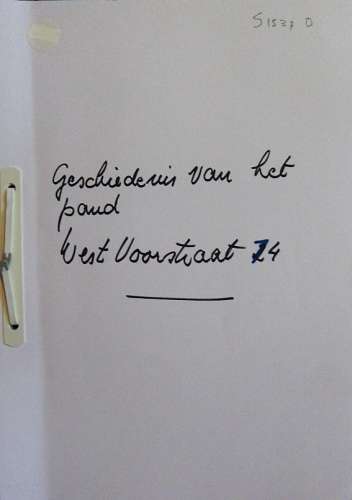 Geschiedenis van het
pand
West Voorstraat 14